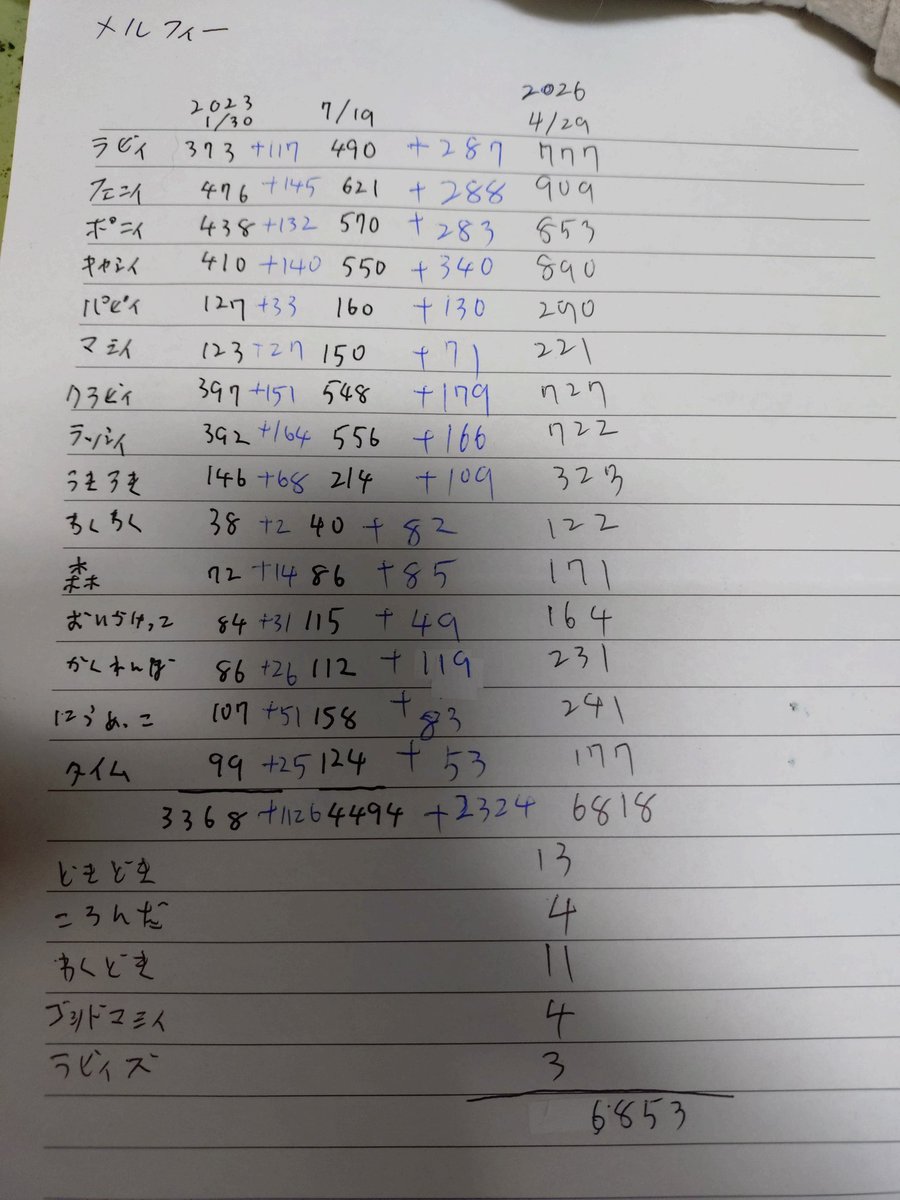 メルフィー
2023 2026
1/30 7/19 4/29
ラビィ 373 +117 490 +287 777
フェニィ 476 +145 621 +288 909
ポニィ 438 +132 570 +283 853
キャシィ 410 +140 550 +340 890
パピィ 127 +33 160 +130 290
マミィ 123 +27 150 +71 221
クラビィ 397 +151 548 +179 727
ラッシィ 392 +164 556 +166 722
うきうき 146 +68 214 +109 323
わくわく 38 +2 40 +82 122
森 72 +14 86 +85 171
おいかけっこ 84 +31 115 +49 164
かくれんぼ 86 +26 112 +119 231
にらめっこ 107 +51 158 +83 241
タイム 99 +25 124 +53 177
3368 +1126 4494 +2324 6818
どきどき 13
ころんだ 4
わくどき 11
ゴッドマミィ 4
ラビィズ 3
6853